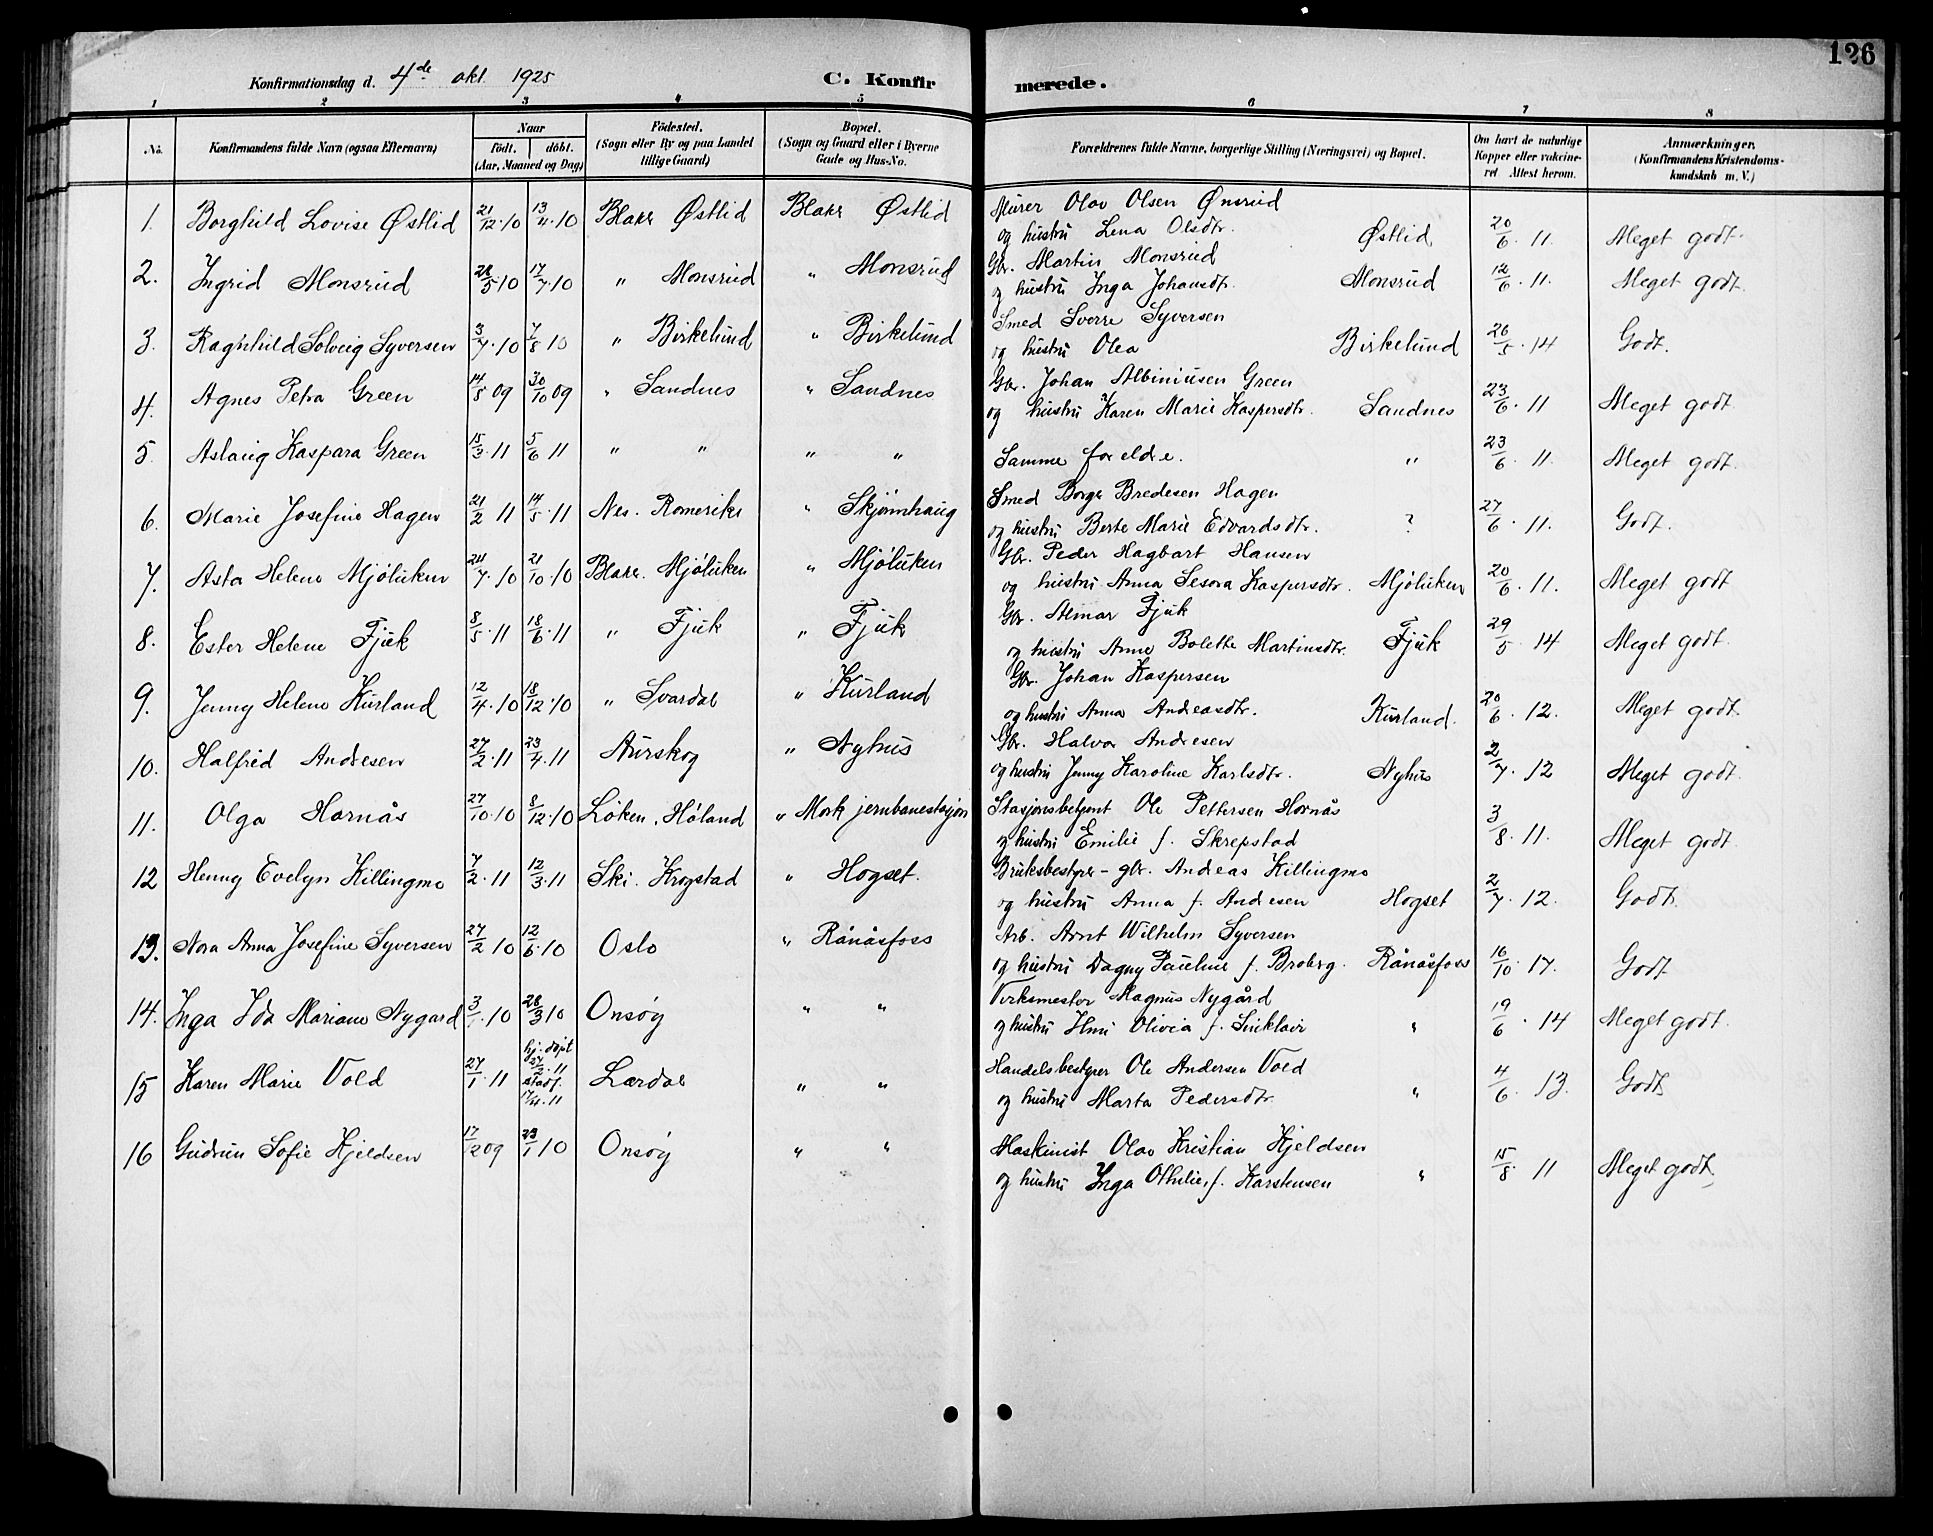 126
Konfirmationsdag d. 4de okt. 1925 C. Konfir merede.
1 2 3 4 5 6 7 8
No. Konfirmandens fulde Navn (ogsaa Efternavn) Naar födt. döbt. (Aar, Maaned og Dag) Födested. (Sogn eller By og paa Landet tillige Gaard) Bopæl. (Sogn og Gaard eller i Byerne Gade og Hus-No. Forældrenes fulde Navne, borgerlige Stilling (Næringsvei) og Bopæl. Om havt de naturlige Kopper eller vakcineret Attest herom. Anmærkninger. (Konfirmandens Kristendomskundskab m. V.)
1. Borghild Lovise Østlid 21/12.10 13/11.10 Blaker Østlid Blaker Østlid Murer Olav Olsen Ønsrud
og hustru Lena Olsdtr. Østlid 20/6.11. Meget godt.
2. Ingrid Monsrud 28/5.10 17/7.10 " Monsrud " Monsrud Gbr. Martin Monsrud
og hustru Inga Johansdtr. Monsrud 12/6.11. Meget godt.
3. Raghnhild Solveig Syversen 3/7.10 7/8 10 " Birkelund " Birkelund Smed Sverre Syversen
og hustru Olea Birkelund 26/5.14 Godt.
4. Agnes Petra Green 14/8 09 30/10 09 " Sandnes " Sandnes Gbr. Johan Albiniusen Green
og hustru Karen Marie Kaspersdtr. Sandnes 23/6.11 Meget godt
5. Aslaug Kaspara Green 15/3.11 5/6 11 " " " " Samme foreldre. " 23/6.11. Meget godt.
6. Marie Josefine Hagen 21/2 11 14/5.11 Nes. Romerike " Skjønnhaug Smed Borger Bredesen Hagen
og hustru Berte Marie Edvardsdtr. ? 27/6.11. Godt.
7. Asta Helene Mjøluken 24/7.10 21/10.10 Blaker. Mjøluken " Mjøluken Gbr. Peder Hagbart Hansen
og hustru Anna Lesora Kaspersdtr. Mjøluken 20/6.11. Meget godt
8. Ester Helene Fjuk 8/5.11 18/6.11 " Fjuk " Fjuk Gbr. Almar Fjuk
og hustru Anne Bolette Martinsdtr. Fjuk 29/5 14 Meget godt.
9. Jenny Helene Kurland 12/4.10 18/12.10 " Svardal " Kurland Gbr. Johan Kaspersen
og hustru Anna Andreasdtr. Kurland. 20/6.12. Meget godt.
10. Halfrid Andresen 27/2.11 23/4.11 Aurskog " Nyhus Gbr. Halvor Andresen
og hustru Jenny Karoline Karlsdtr. Nyhus 2/7.12 Meget godt.
11. Olga Hornås 27/10.10 8/12.10 Løken, Høland " Mork jernbanestasjon Stasjonsbetjent Ole Pettersen Hornås
og hustru Emilie f. Skrepstad 3/8.11. Meget godt.
12 Henny Evelyn Killingmo 7/2.11 12/3.11 Ski. Krogstad " Hogset. Bruksbestyrer - gbr. Andreas Killingmo
og hustru Anna f. Andresen Hogset 2/7.12. Godt.
13. Nora Anna Josefine Syversen 27/2 10 12/6.10 Oslo " Rånåsfoss Arb. Arnt Wilhelm Syversen
og hustru Dagny Pauline f. Broberg. Rånåsfoss 16/10.17. Godt
14. Inga Ida Mariane Nygard 3/1.10 28/3 10 Onsøy " " Verksmester Magnus Nygård
og hustru Olivia f. Sinklair " 19/6.14 Meget godt.
15 Karen Marie Vold 27/1.11 hj. døpt 27/2.11 stadf. 17/4.11 Lærdal " " Handelsbestyrer Ole Andersen Vold
og hustru Marta Pedersdtr. " 4/6.13. Godt
16 Gudrun Sofie Kjeldsen 17/12 09 23/1 10 Onsøy " " Maskinist Olav Kristian Kjeldsen
og hustru Inga Othilie, f. Karstensen " 15/8.11 Meget godt.